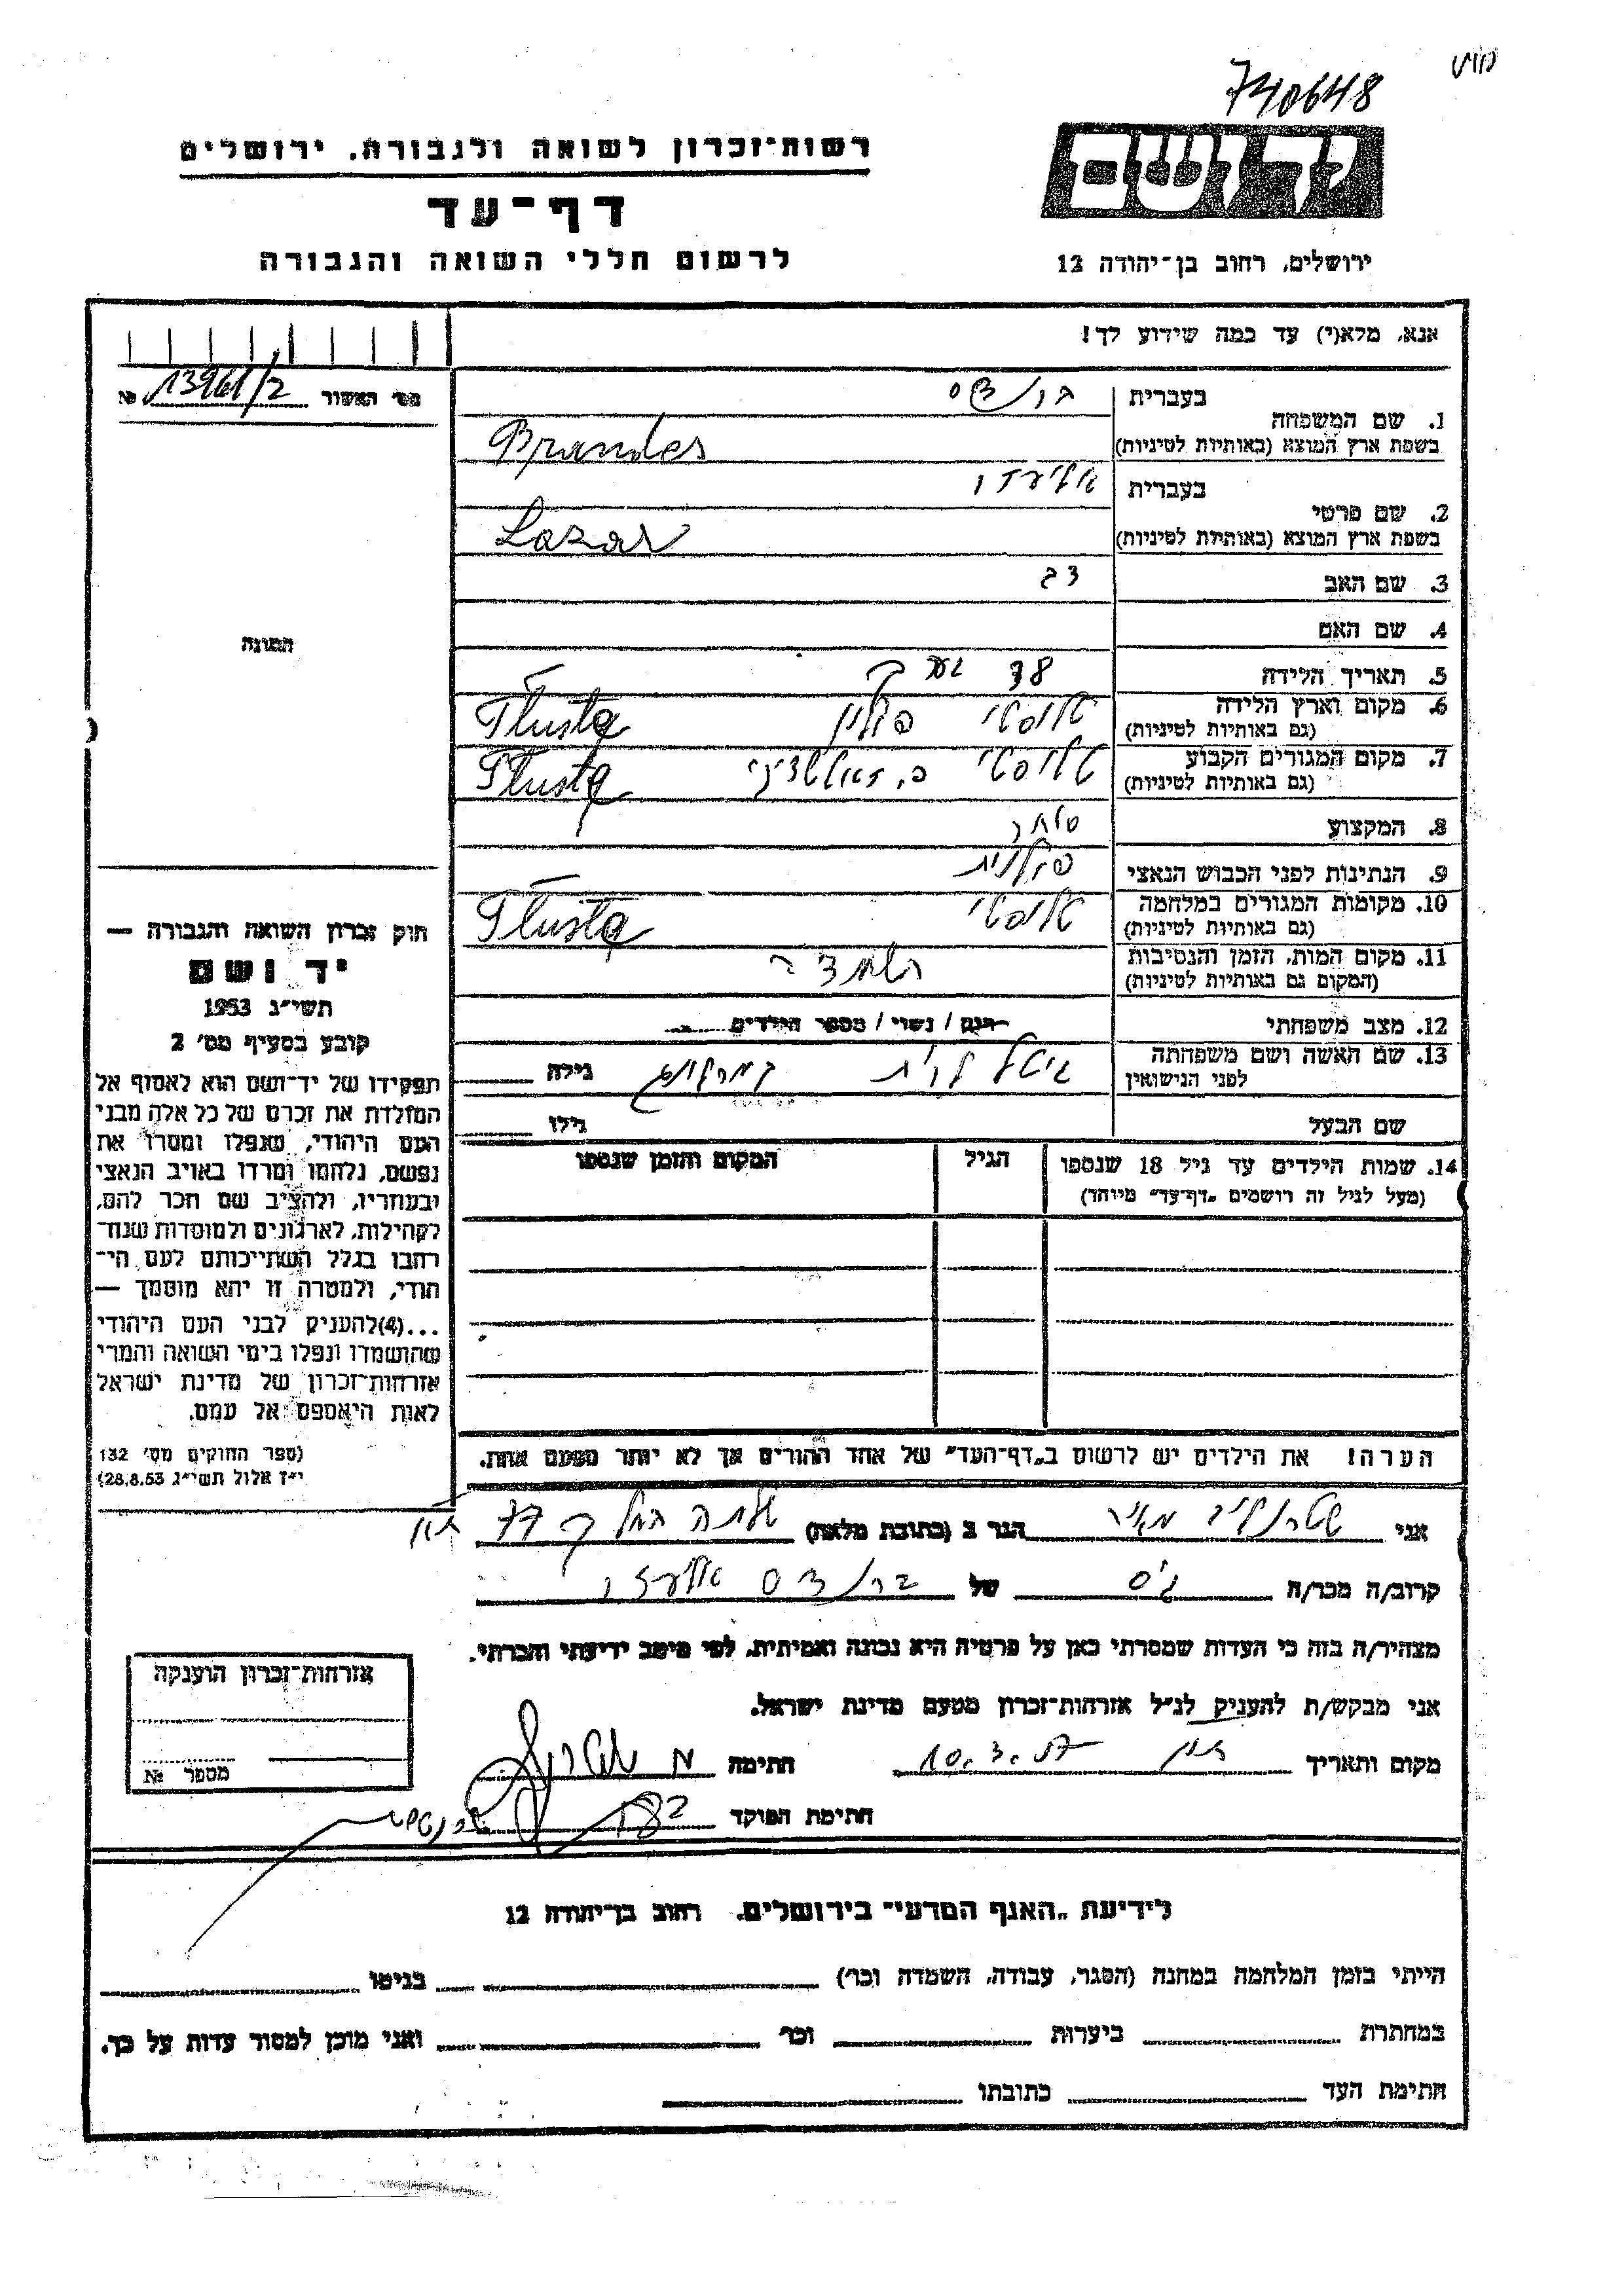 740648
יד ושם
ירושלים, רחוב בן־יהודה 12
רשות־זכרון לשואה ולגבורה, ירושלים
דף־עד
לרשום חללי השואה והגבורה
אנא, מלא(י) עד כמה שידוע לך!
מס׳ האשור 13961/2 №
התונה
1. שם המשפחה
בעברית ברנדס
בשפת ארץ המוצא (באותיות לטיניות) Brandes
2. שם פרטי
בעברית אליעזר
בשפת ארץ המוצא (באותיות לטיניות) Lazar
3. שם האב
4. שם האם
5. תאריך הלידה 38
6. מקום וארץ הלידה (גם באותיות לטיניות) טלוסטי פולין Tłusta
7. מקום המגורים הקבוע (גם באותיות לטיניות) טלוסטי Tłusta
8. המקצוע סוחר
9. הנתינות לפני הכבוש הנאצי פולנית
10. מקומות המגורים במלחמה (גם באותיות לטיניות) טלוסטי Tłusta
11. מקום המות, הזמן והנסיבות (המקום גם באותיות לטיניות)
12. מצב משפחתי רווק / נשוי / מספר הילדים
13. שם האשה ושם משפחתה לפני הנישואין גילה
שם הבעל גילו
14. שמות הילדים עד גיל 18 שנספו הגיל המקום והזמן שנספו
(מעל לגיל זה רושמים „דף־עד״ מיוחד)
הערה! את הילדים יש לרשום ב„דף־העד״ של אחד ההורים אך לא יותר מפעם אחת.
חוק זכרון השואה והגבורה —
יד ושם
תשי״ג 1953
קובע בסעיף מס׳ 2
תפקידו של יד־ושם הוא לאסוף אל
המולדת את זכרם של כל אלה מבני
העם היהודי, שנפלו ומסרו את
נפשם, נלחמו ומרדו באויב הנאצי
ובעוזריו, ולהציב שם וזכר להם,
לקהילות, לארגונים ולמוסדות שנח־
רבו בגלל השתייכותם לעם הי־
הודי, ולמטרה זו יהא מוסמך —
...(4)להעניק לבני העם היהודי
שהושמדו ונפלו בימי השואה והמרי
אזרחות־זכרון של מדינת ישראל
לאות היאספם אל עמם.
(ספר החוקים מס׳ 132
י״ז אלול תשי״ג 28.8.53)
אני שטרנליב מאיר הגר ב (כתובת מלאה) שלמה המלך 77
קרוב/ה מכר/ה גיס של ברנדס אליעזר
מצהיר/ה בזה כי העדות שמסרתי כאן על פרטיה היא נכונה ואמיתית, לפי מיטב ידיעתי והכרתי.
אני מבקש/ת להעניק לנ״ל אזרחות־זכרון מטעם מדינת ישראל.
מקום ותאריך 10.3.57 חתימה
חתימת הפוקד
אזרחות־זכרון הוענקה
מספר №
לידיעת „האגף המדעי״ בירושלים, רחוב בן־יהודה 12
הייתי בזמן המלחמה במחנה (הסגר, עבודה, השמדה וכו׳) בגיטו
במחתרת ביערות וכו׳ ואני מוכן למסור עדות על כך.
חתימת העד כתובתו